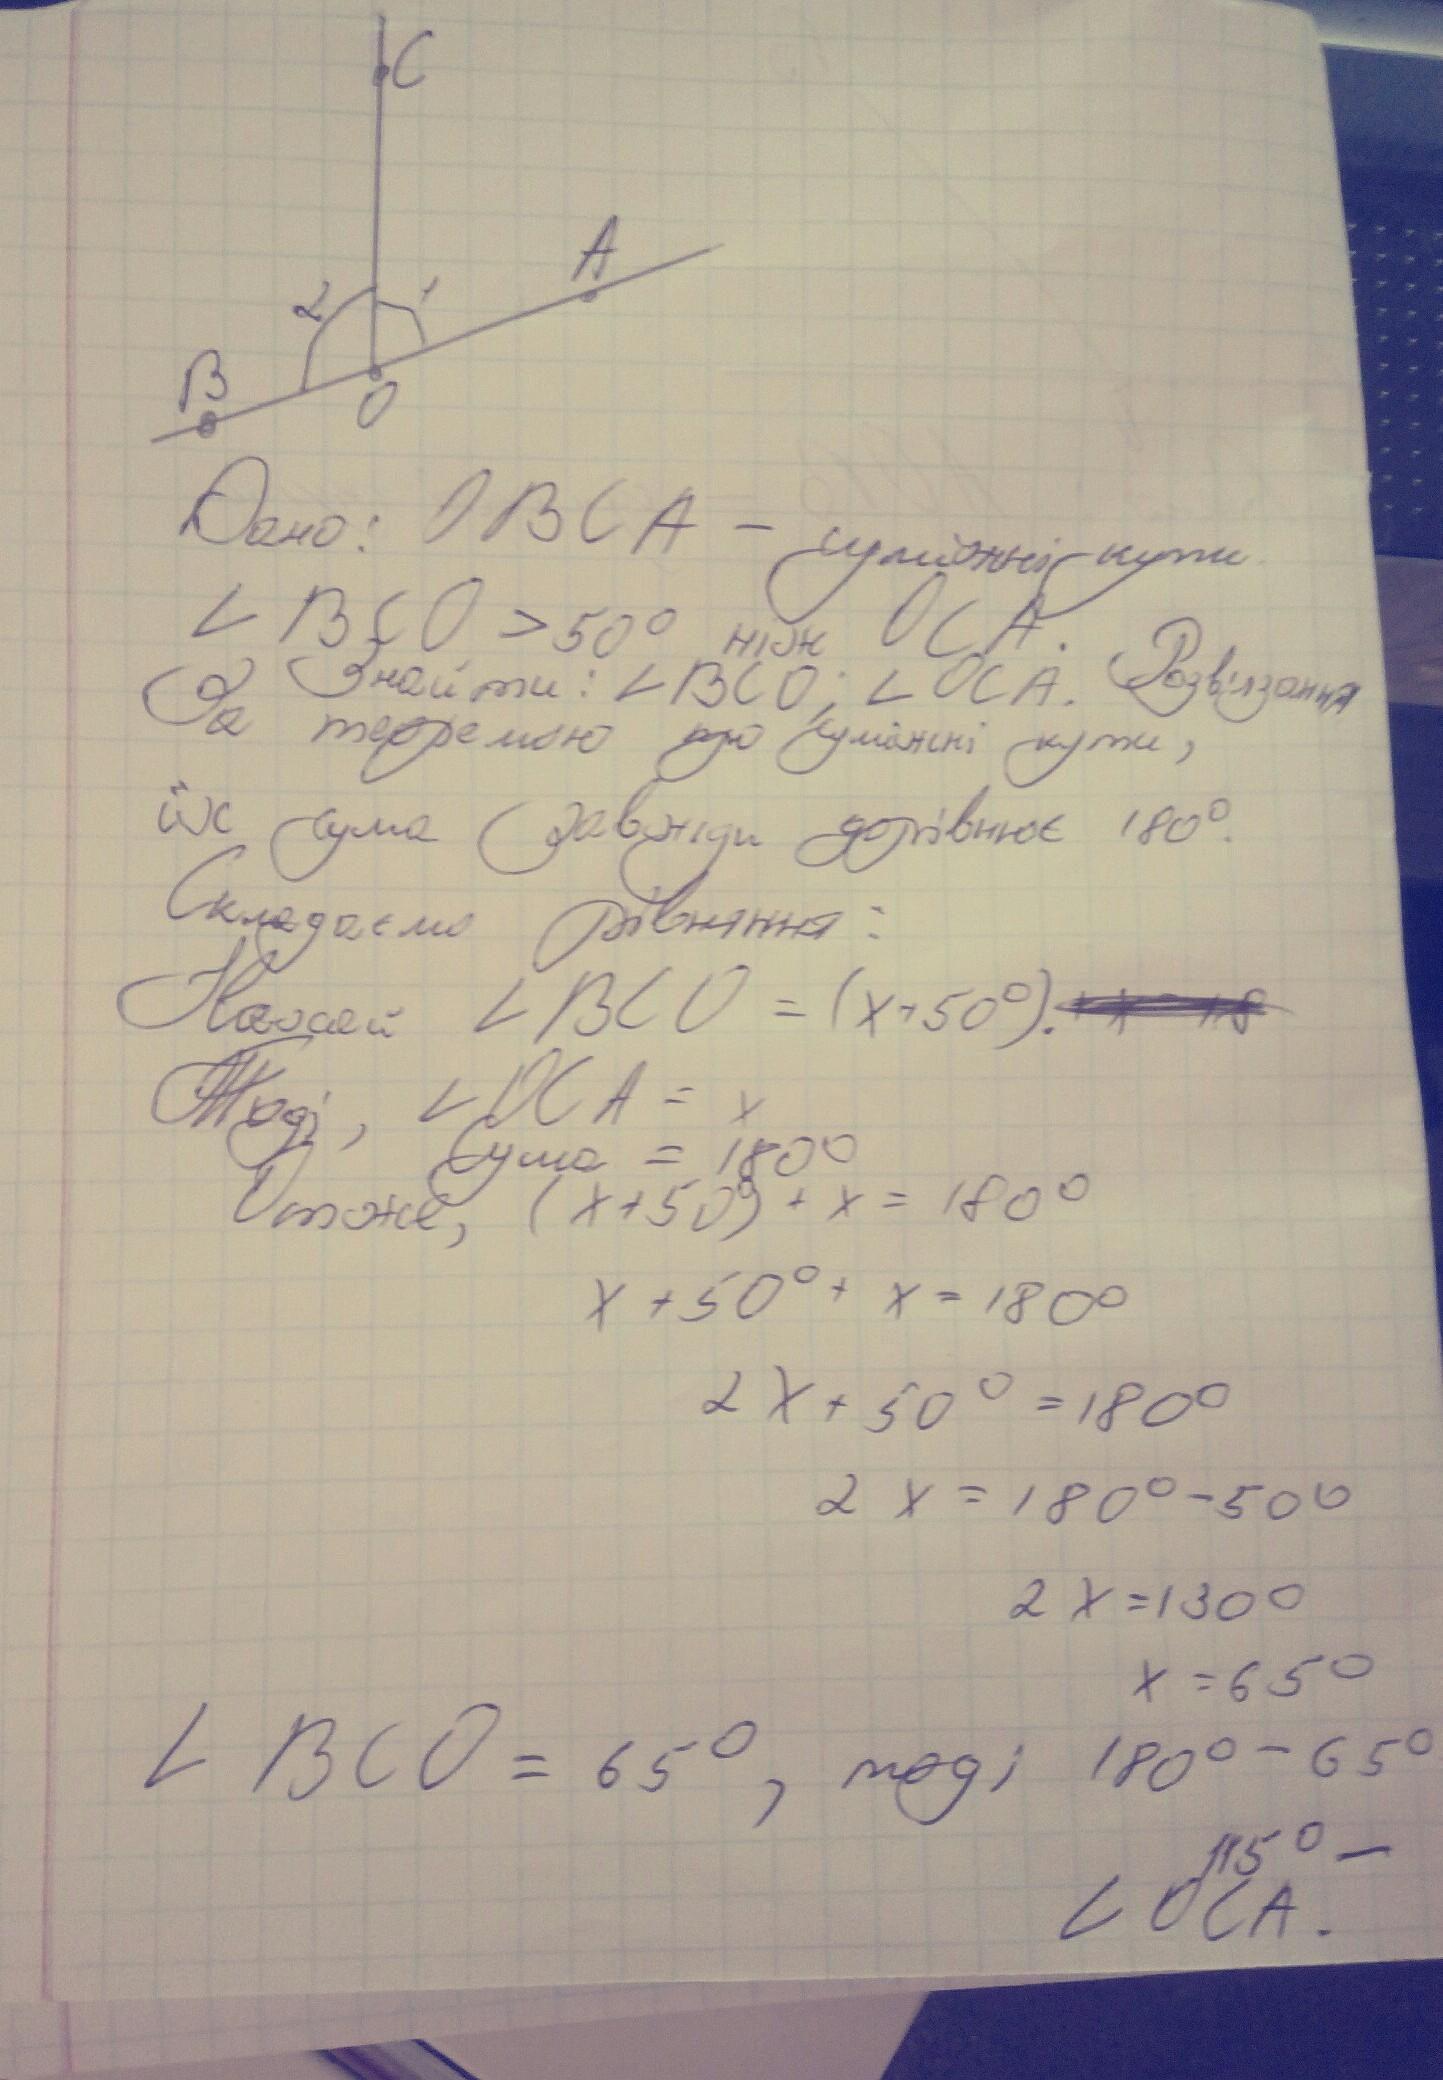 C
A
2 1
B
O
Дано: OBCA - суміжні кути.
∠ BCO > 50° ніж OCA.
Знайти: ∠BCO; ∠OCA. Розв'язання
За теоремою про суміжні кути,
їх сума завжди дорівнює 180°.
Складаємо рівняння:
Нехай ∠BCO = (x+50°).
Тоді, ∠OCA = x
Сума = 180°
Отже, (x+50°) + x = 180°
x + 50° + x = 180°
2x + 50° = 180°
2x = 180° - 50°
2x = 130°
x = 65°
∠ BCO = 65°, тоді 180° - 65°
115° -
∠ OCA.